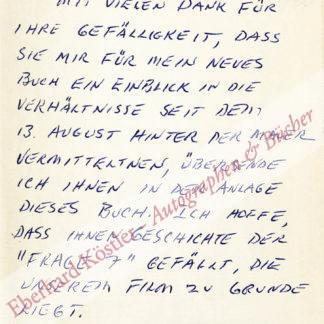 MIT VIELEN DANK FÜR
IHRE GEFÄLLIGKEIT, DASS
SIE MIR FÜR MEIN NEUES
BUCH EIN EINBLICK IN DIE
VERHÄLTNISSE SEIT DEM
13. AUGUST HINTER DER MAUER
VERMITTELTNEN, ÜBERSENDE
ICH IHNEN IN DER ANLAGE
DIESES BUCH. ICH HOFFE,
DASS IHNEN GESCHICHTE DER
"FRAGE 7" GEFÄLLT, DIE
UNSEREM FILM ZU GRUNDE
LIEGT.
Eberhard Köstler - Autographen & Bücher